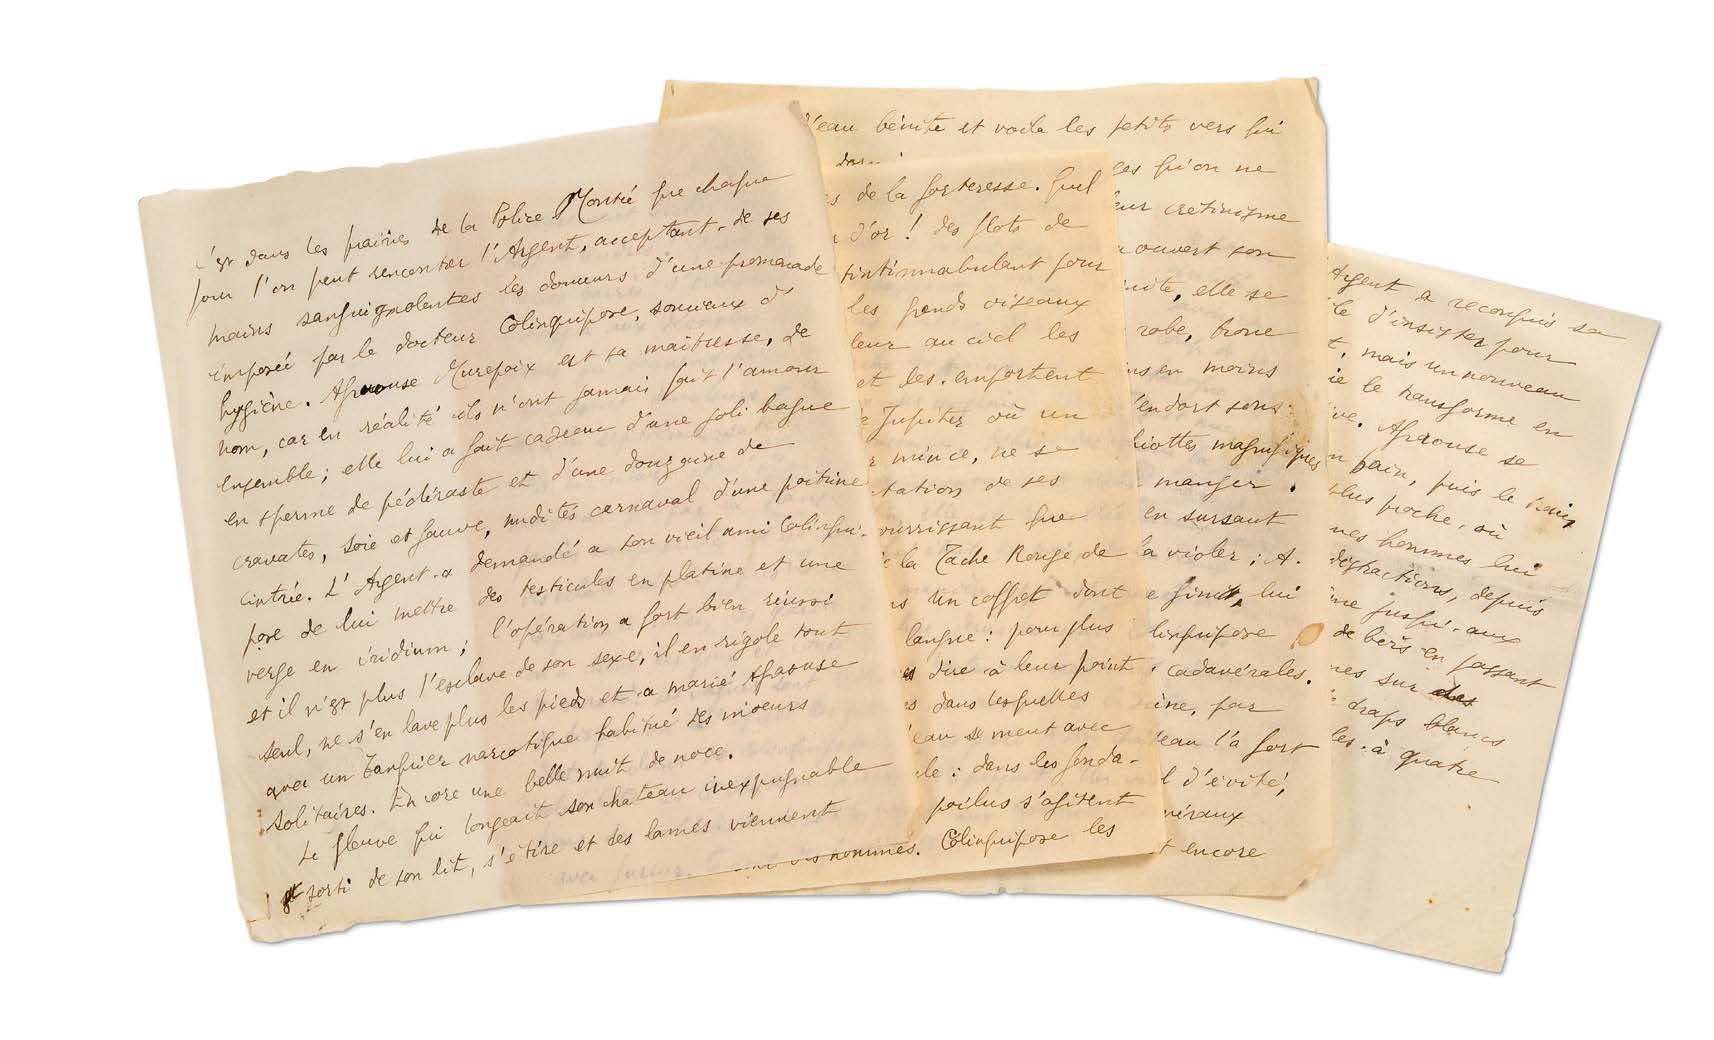 C'est dans les prairies de la Police Montée que chaque
jour l'on peut rencontrer l'Argent, acceptant de ses
mains sanguignolentes les douceurs d'une promenade
imposée par le docteur Colinquipore, soucieux d'
hygiène. Afrouse Mirepoix est sa maitresse, de
nom, car en réalité ils n'ont jamais fait l'amour
ensemble ; elle lui a fait cadeau d'une joli bague
en sperme de pédéraste et d'une douzaine de
cravates, soie et fauve, nudités carnaval d'une poitrine
cintrée. L'Argent a demandé a son vieil ami Colinqui-
pore de lui mettre des testicules en platine et une
verge en iridium ; l'opération a fort bien réussi
et il n'est plus l'esclave de son sexe, il en rigole tout
seul, ne s'en lave plus les pieds et a marié Afrouse
avec un Tanguier narcotique habitué des moeurs
solitaires. Encore une belle nuit de noce.
Le fleuve qui longeait son chateau inexpugnable
est sorti de son lit, s'étire et des lames viennent
de la forteresse. Quel
d'or ! des flots de
tintinnabulant pour
les grands oiseaux
leur au ciel les
et les emportent
Jupiter où un
mince, ne se
tation de ses
ourrissant que
la Tache Rouge de
un coffret dont
langue : pour plus
dire à leur point
dans lesquelles
eau se meut avec
le : dans les fonda-
poilus s'agitent
hommes. Colinquipore les
d'eau bénite et voila les petits vers qui
ges qu'on ne
leur cretinisme
ouvert son
nite, elle se
robe, trone
en moins
s'endort sous
magnifiques
manger.
en sursaut
la violer ; A.
lui
linquipore
cadavérales.
ine, par
eau l'a fort
d'évité,
néraux
encore
Argent a reconquis sa
d'insister pour
mais un nouveau
le transforme en
Afrouse se
bain, puis le
plus proche, où
nes hommes lui
distractions, depuis
jusqu'aux
de bois en passant
sur des
draps blancs
à quatre